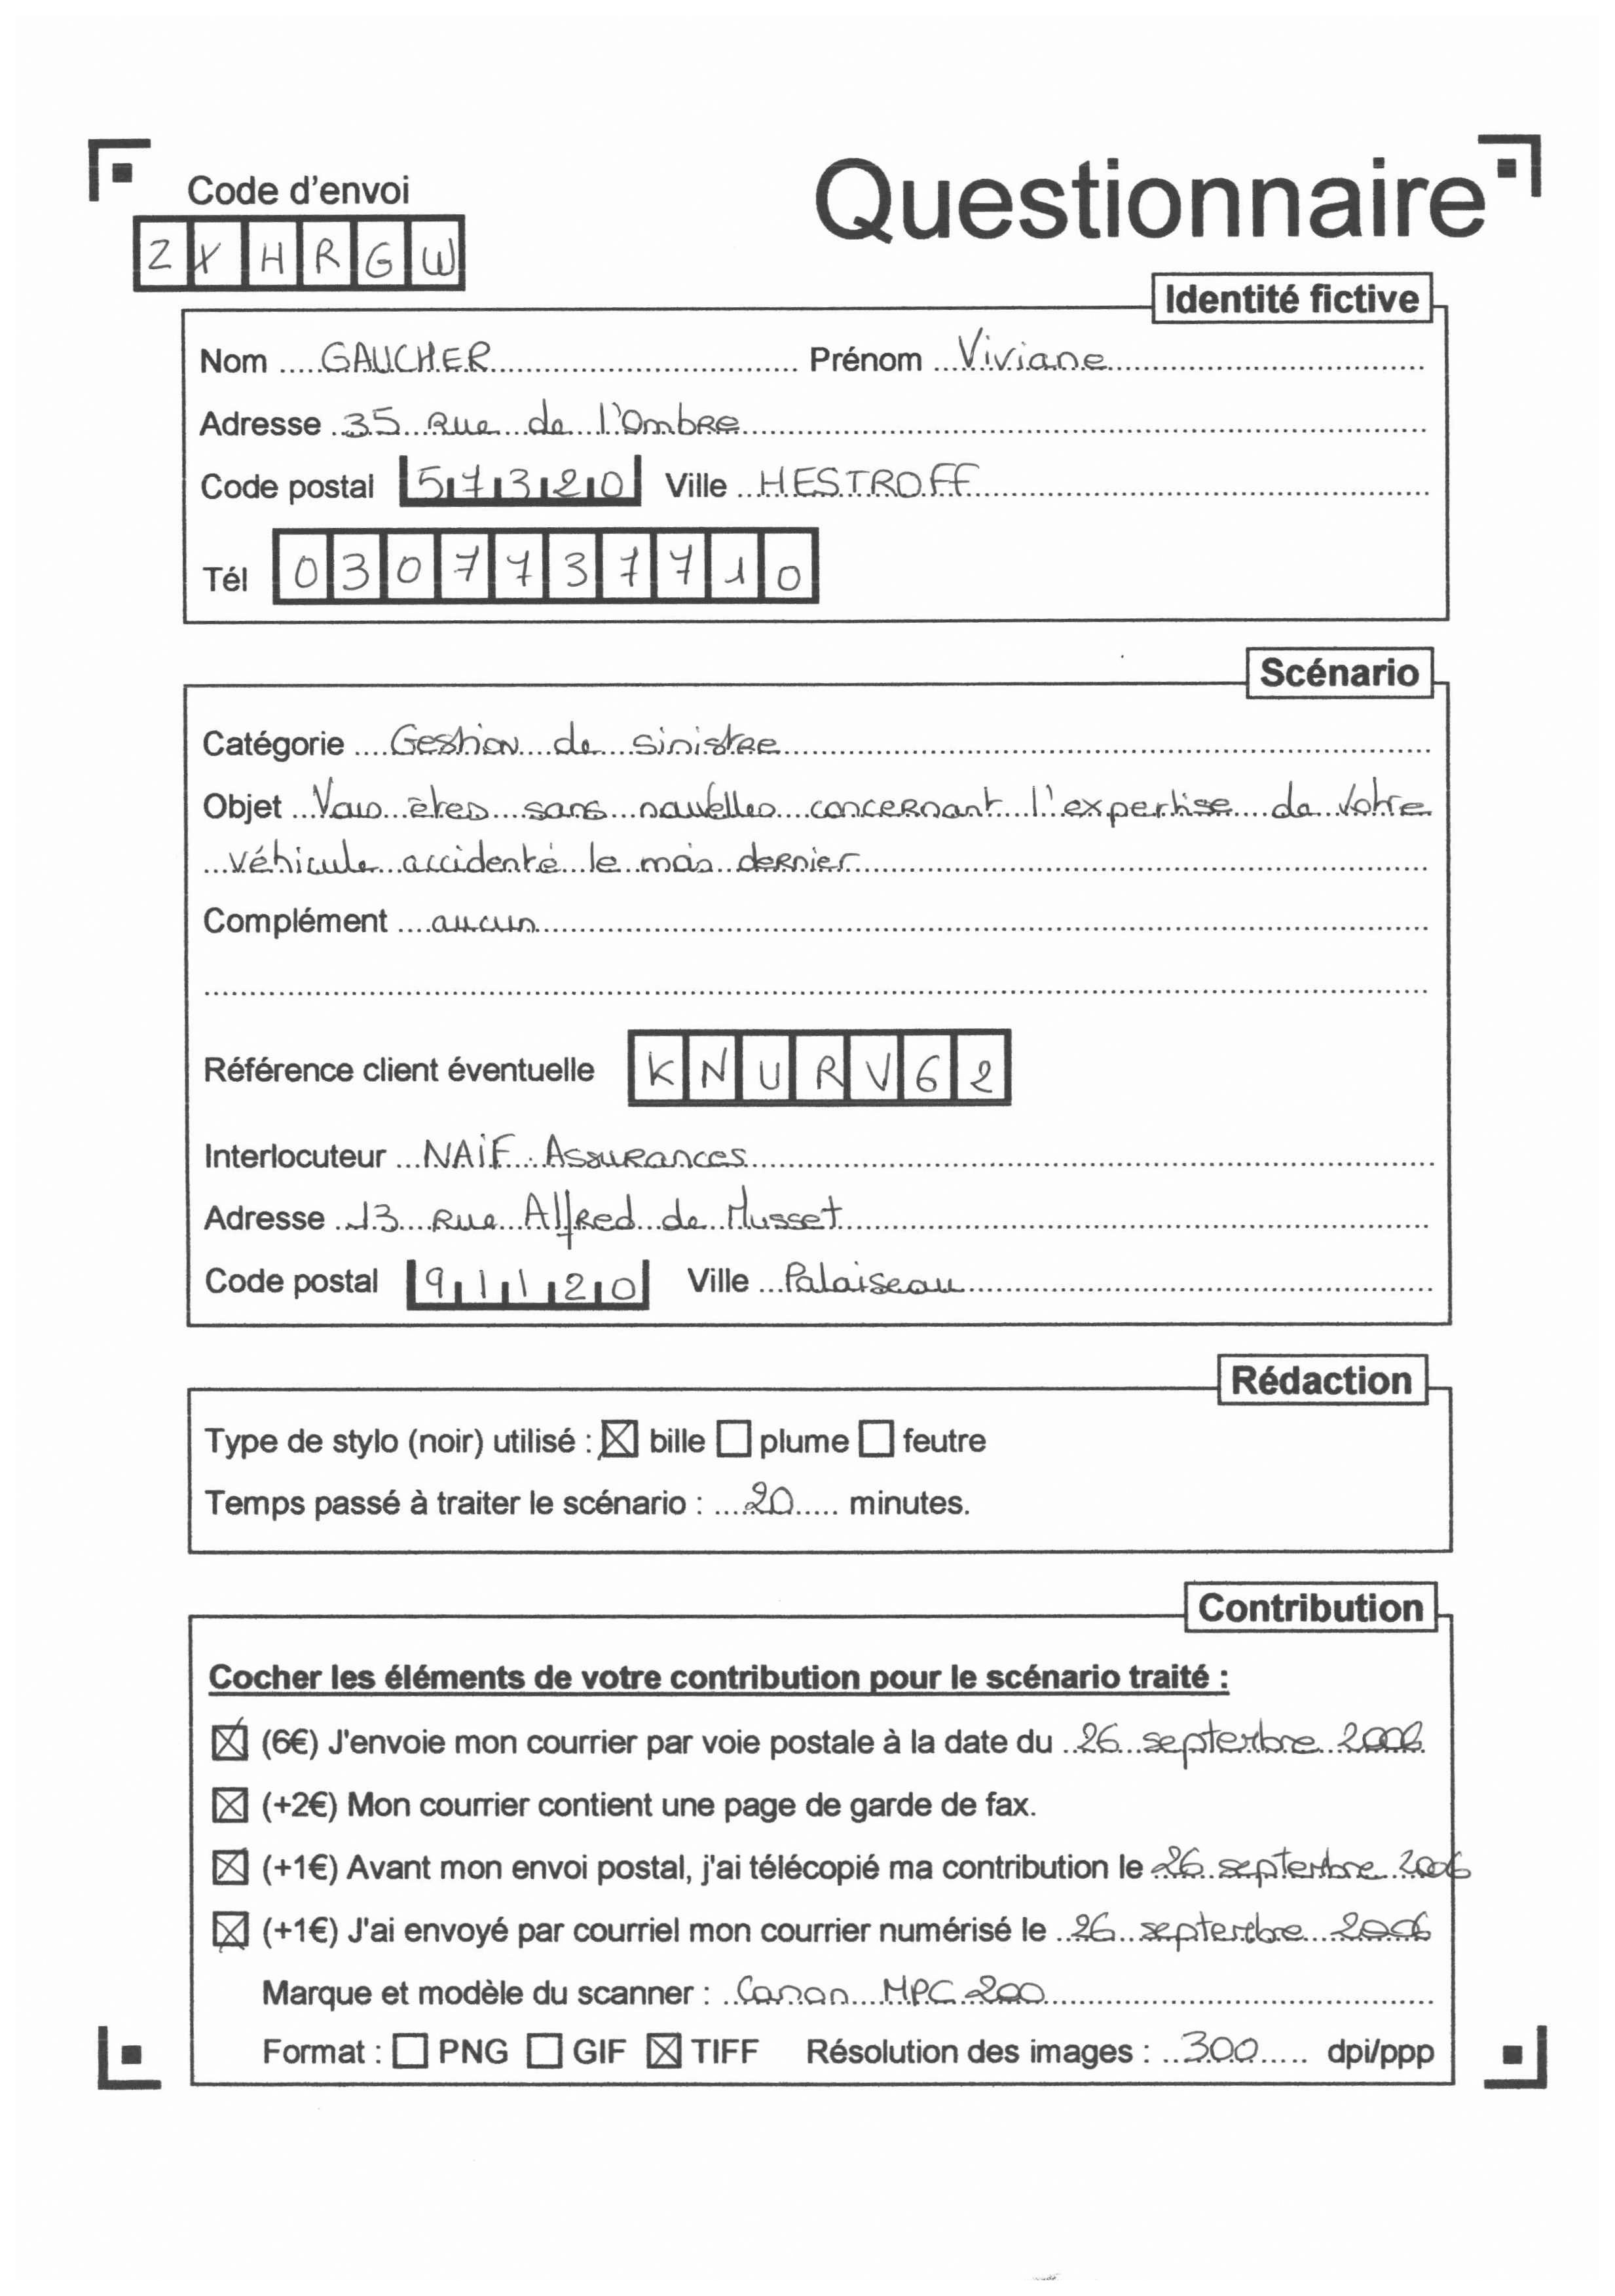 Code d'envoi
Questionnaire
ZXHRGW
Identité fictive
Nom GAUCHER Prénom Viviane
Adresse 35 Rue de l'Ombre
Code postal 57320 Ville HESTROFF
Tél 0307737710
Scénario
Catégorie Gestion de sinistre
Objet Vous êtes sans nouvelles concernant l'expertise de votre
véhicule accidenté le mois dernier
Complément aucun
Référence client éventuelle KNURV62
Interlocuteur NAIF Assurances
Adresse 13 Rue Alfred de Musset
Code postal 91120 Ville Palaiseau
Rédaction
Type de stylo (noir) utilisé : ☒ bille ☐ plume ☐ feutre
Temps passé à traiter le scénario : 20 minutes.
Contribution
Cocher les éléments de votre contribution pour le scénario traité :
☒ (6€) J'envoie mon courrier par voie postale à la date du 26 septembre 2006
☒ (+2€) Mon courrier contient une page de garde de fax.
☒ (+1€) Avant mon envoi postal, j'ai télécopié ma contribution le 26 septembre 2006
☒ (+1€) J'ai envoyé par courriel mon courrier numérisé le 26 septembre 2006
Marque et modèle du scanner : Canon MPC 200
Format : ☐ PNG ☐ GIF ☒ TIFF Résolution des images : 300 dpi/ppp